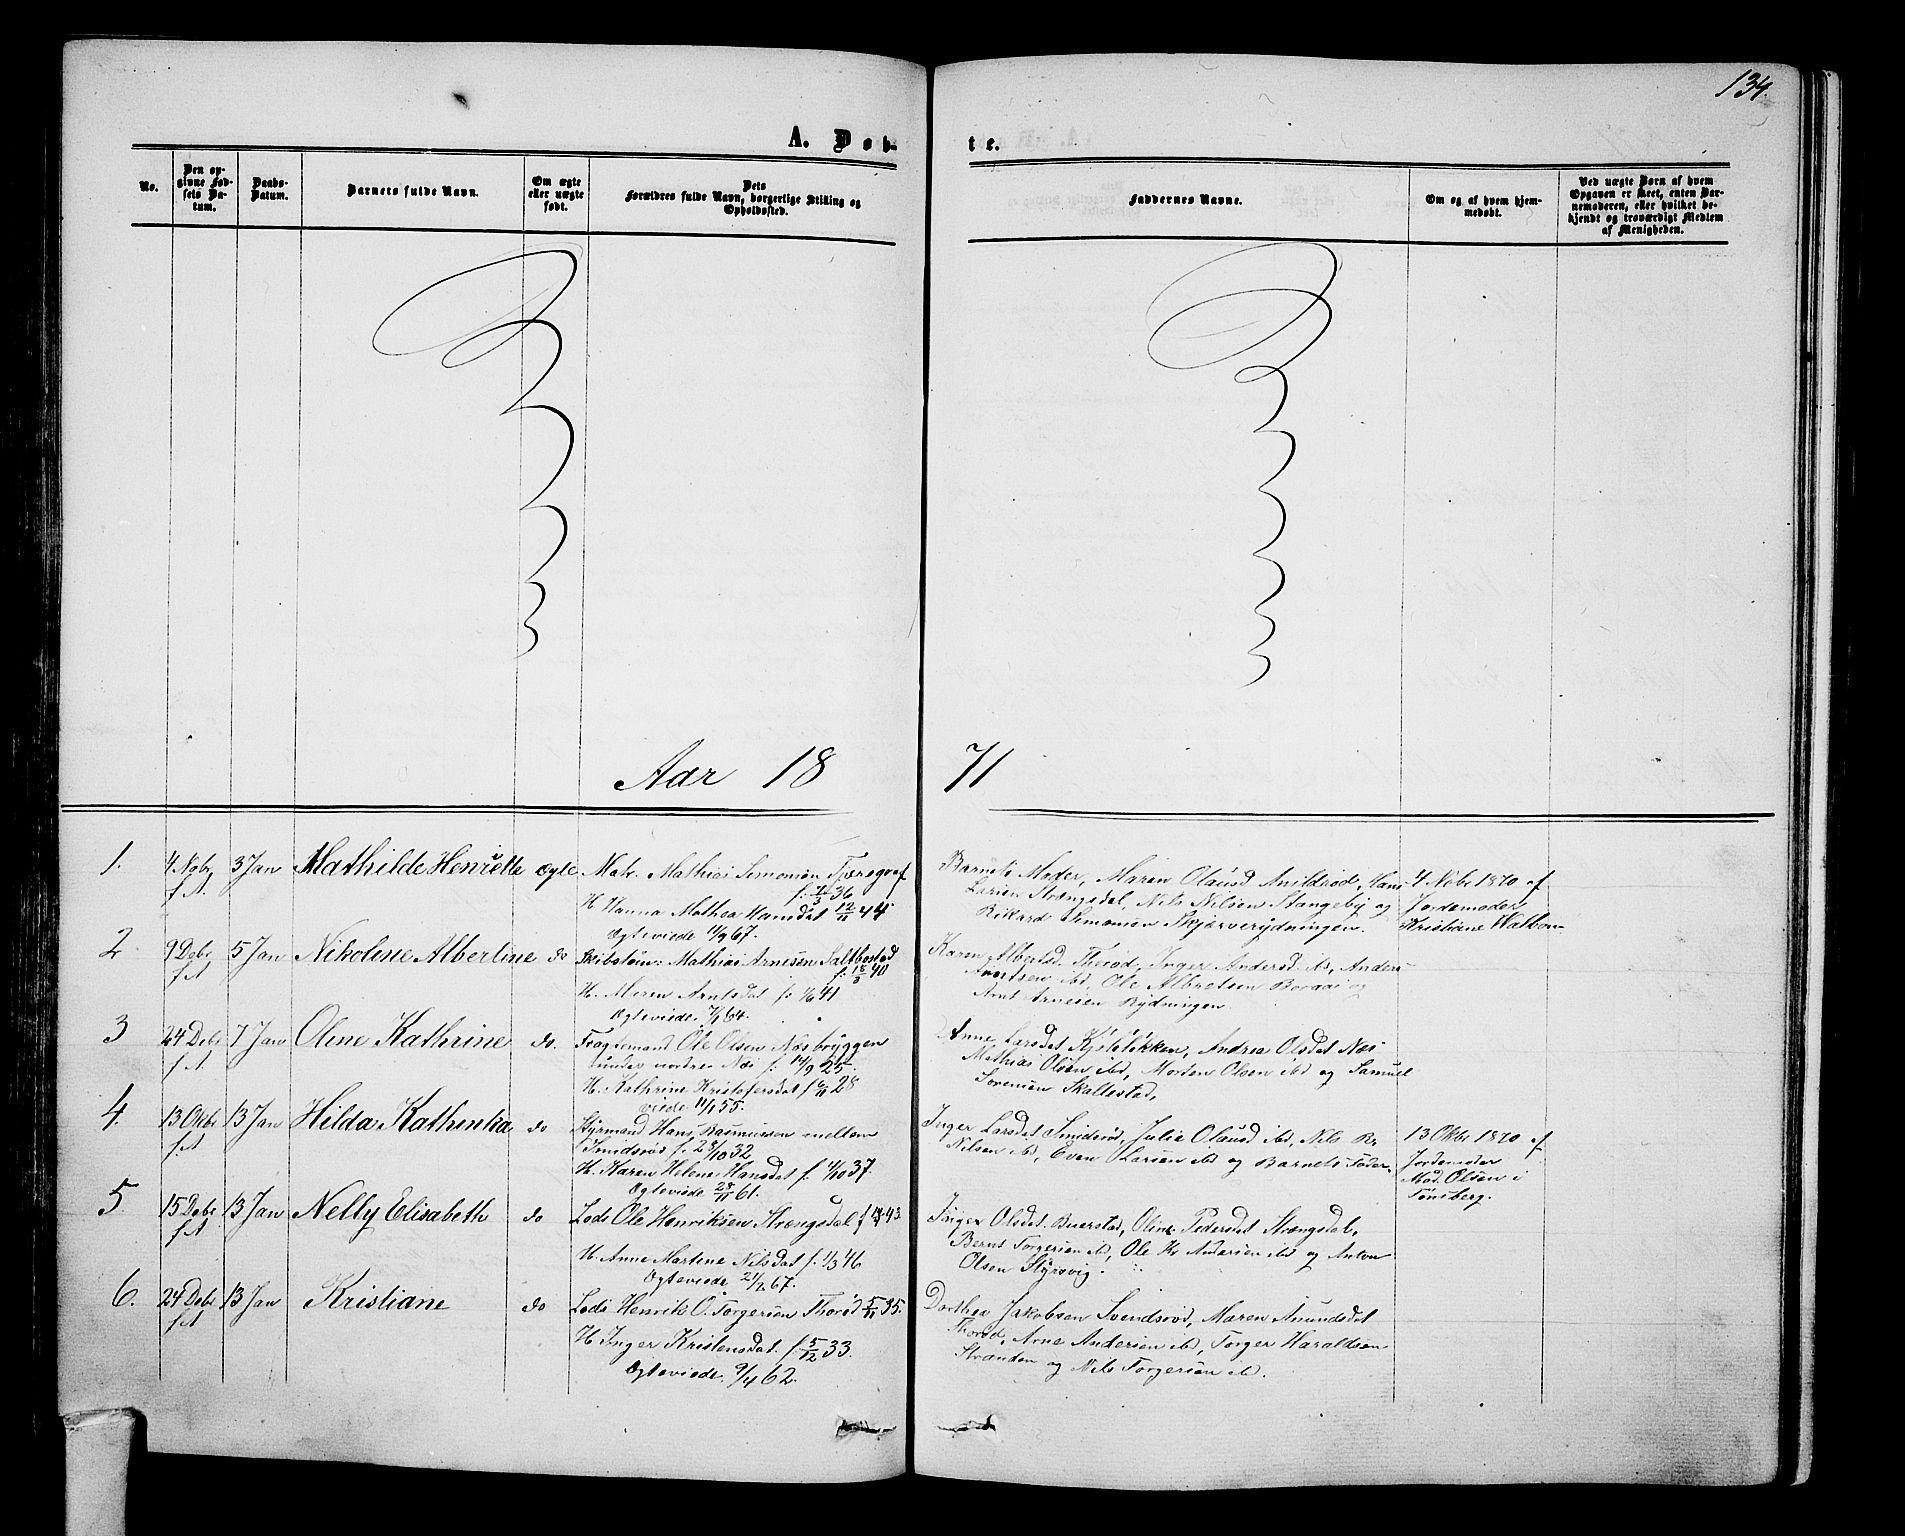 134.
A. Døb-
te.
No.
Den op-
givne Fød-
sels Da-
tum.
Daabs-
Datum.
Barnets fulde Navn.
Om ægte
eller uægte
født.
Dets
Forældres fulde Navn, borgerlige Stilling og
Opholdssted.
Faddernes Navne.
Om og af hvem hjem-
medøbt.
Ved uægte Børn af hvem
Opgaven er skeet, enten Bar-
nemoderen, eller hvilket be-
kjendt og troværdigt Medlem
af Menigheden.
Aar 18
71
1.
4 Nobr
f. A.
3 Jan
Mathilde Henriette
Ægte
Matr. Mathias Simonsen Fjæregraf
H. Hanna Mathea Hansdat 12/11 44
Ægteviede 11/9 67.
Barnets Moder, Maren Olausd Anildrød, Hans
Larsen Strængsdal, Nils Nilsen Stangeby og
Rikard Simonsen Skjærverydningen.
4 Nobr 1870 af
Jordemoder
Kristiane Walbom
2
9 Debr
f. A
5 Jan
Nikolene Albertine
do
Skibstøm: Mathias Arnesen Saltbostad
f. 18/8 40
H. Maren Arntsdat f: 1/6 41
Ægteviede 7/1 64.
Karen Albertsd. Thorød, Inger Andersd. ibd, Anders
Arntsen ibd, Ole Albretsen Borgaas og
Arnt Arnesen Rydningen
3
24 Debr
f. A
7 Jan
Oline Kathrine
do.
Fragtemand Ole Olsen Næsbryggen
under nordre Næs f: 14/9 25.
H. Kathrine Kristofersdat f 6/11 28
viede 11/1 55.
Anne Larsdat Kjøleløkken, Andrea Olsdat Næs
Mathias Olsen ibd, Morten Olsen ibd og Samuel
Sørensen Skallestad,
4.
13 Okbr
f. A
13 Jan
Hilda Kathinka
do
Styrmand Hans Rasmussen mellem
Smidsrød f. 28/10 32
H. Karen Helene Hansdat f. 4/10 37.
Ægteviede 28/11 61.
Inger Larsdat Smidsrød, Julie Olausd ibd, Nils Kr
Nilsen ibd, Even Larsen ibd og Barnets Fader.
13 Okbr 1870 af
Jordemoder
Mad. Olsen i
Tønsberg.
5
15 Debr
f. A
13 Jan
Nelly Elisabeth
do
Lods Ole Henriksen Strængsdal
H. Anne Martine Nilsdat f. 1/3 46
Ægteviede 21/2 67.
Inger Olsdat. Buerstad, Oline Pedersdat Strængsdal,
Bernt Torgersen ibd, Ole Kr Andersen ibd og Anton
Olsen Styrsvig.
6.
24 Debr
f. A
13 Jan
Kristiane
do
Lods Henrik O. Torgersen Thorød 5/11 35.
H. Inger Kristensdat. f. 5/12 33.
Ægteviede. 9/4 62.
Dorthea Jakobsen Svendsrød, Maren Amundsdat
Thorød, Arne Andersen ibd, Torger Haraldsen
Stranden og Nils Torgersen ibd.